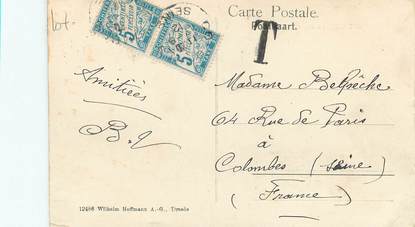 lot.
Carte Postale.
Postkaart.
T
5
5
Amitiées
B. V
Madame Belpêche
64 Rue de Paris
à
Colombes (Seine)
(France)
12486 Wilhelm Hoffmann A.-G., Dresde